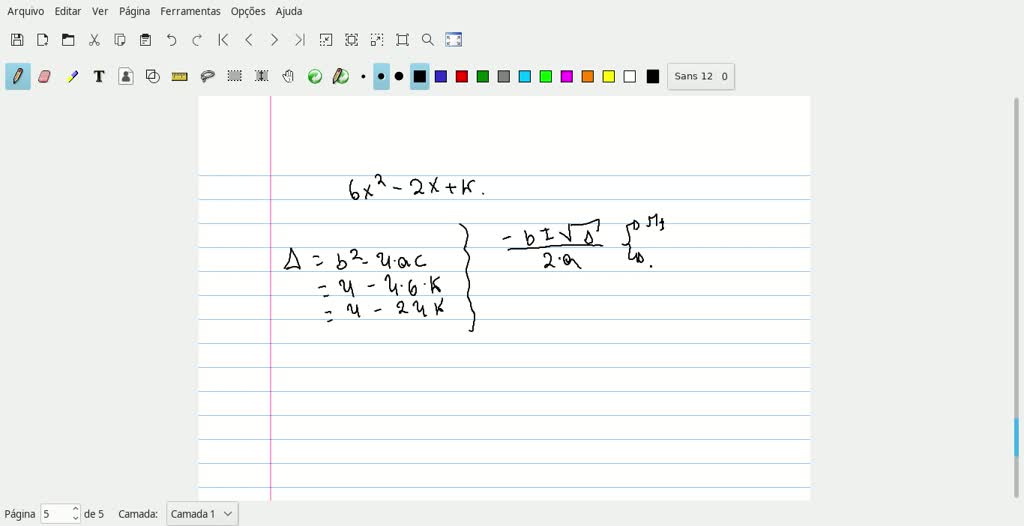 Arquivo Editar Ver Página Ferramentas Opções Ajuda
T Sans 12 0
6x² - 2x + k.
Δ = b² - 4·ac
= 4 - 4·6·k
= 4 - 24k
- b ± √Δ
2·a
Página 5 de 5 Camada: Camada 1